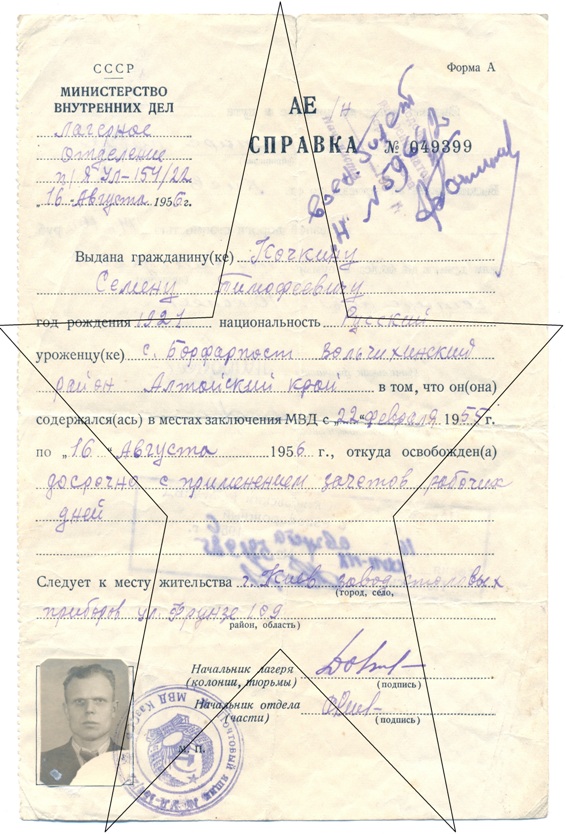 СССР
МИНИСТЕРСТВО
ВНУТРЕННИХ ДЕЛ
Лагерное
отделение
п/я УЛ-154/22
„16 Августа 1956г.
Форма А
АЕ /н
СПРАВКА № 049399
воен. билет
Н. №
Выдана гражданину(ке) Кочкину
Семену Тимофеевичу
год рождения 1921 национальность Русский
уроженцу(ке) с. Борфарпост Вольчихинский
район Алтайский край в том, что он(она)
содержался(ась) в местах заключения МВД с „22 февраля 1955 г.
по „16 „ Августа 1956 г., откуда освобожден(а)
досрочно с применением зачетов рабочих
дней
Следует к месту жительства г. Киев завод столовых
(город, село,
приборов ул. Фрунзе 169
район, область)
Начальник лагеря
(колонии, тюрьмы)
(подпись)
Начальник отдела
(части)
(подпись)
М. П.